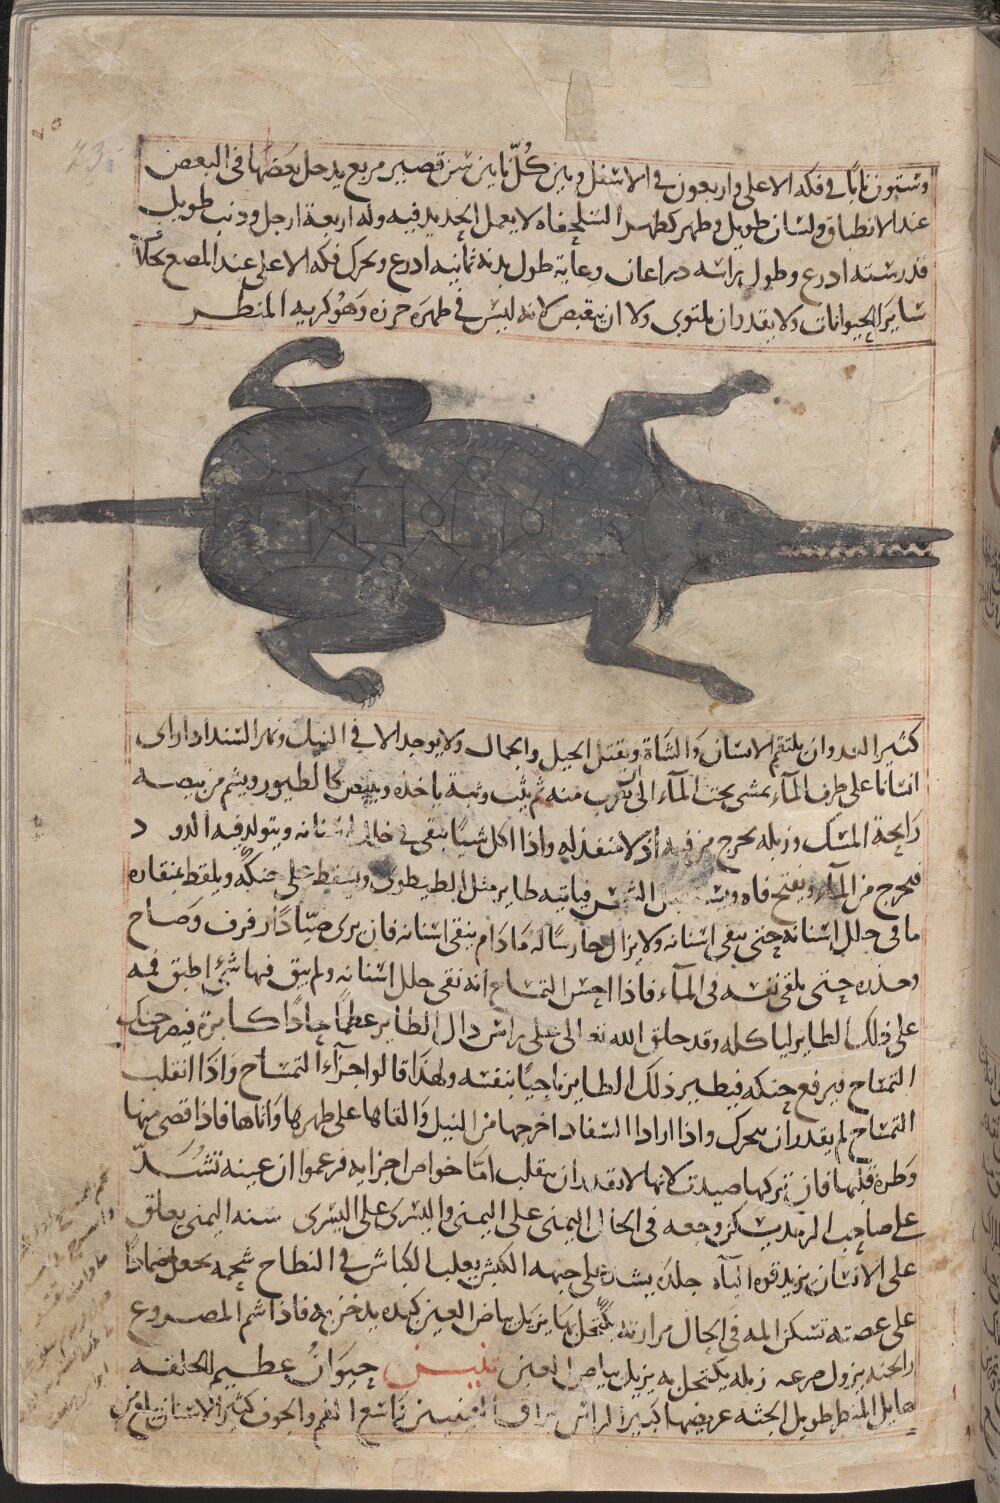 وستون نابا في فكه الاعلى واربعون في الاسفل وبين كل نابين سن قصير مربع يدخل بعضها في البعض
عند الانطباق ولسان طويل وظهر كظهر السلحفاه لا يعمل الحديد فيه وله اربعة ارجل وذنب طويل
قدر ستة ادرع وطول راسه دراعان وغاية طول بدنه ثمانية ادرع ويحرك فكه الاعلى عند المضغ بخلاف
ساير الحيوانات ولا يقدر ان يلتوى ولا ان ينقبض لانه ليس في ظهره خرزه وهو كريه المنظر
كثير العدوان يلتقم الانسان والشاة ويقتل الخيل والجمال ولا يوجد الا في النيل ونهر السند اذا راى
انسانا على طرف المآء يمشى تحت المآء الى ان يقرب منه ثم يثب وثبة ياخذه ويبيض كالطيور ويشم من بيضه
رايحة المسك وزبله يخرج من فيه اذ لا منفذ له واذا اكل شيا يبقى في خلل اسنانه ويتولد فيه الدود
فيخرج من المآء ويفتح فاه ويستقبل الشمس فياتيه طاير مثل الطيطوى ويسقط على حنكه ويلقط بمنقاره
ما فى خلل اسنانه حتى ينقى اسنانه ولا يزال حارسا له ما دام ينقى اسنانه فان يرى صيادا رفرف وصاح
وحذره حتى يلقى نفسه فى المآء فاذا احس التمساح انه نقى خلل اسنانه ولم يبق فيها شئ اطبق فمه
على ذلك الطاير لياكله وقد خلق الله تعالى على راس ذلك الطاير عظما حادا كابرة فيضرب حنك
التمساح فيرفع حنكه فيطير ذلك الطاير ناجيا بنفسه ولهذا قالوا جزآء التمساح واذا انقلب
التمساح لم يقدر ان يتحرك واذا اراد السفاد اخرجها من النيل والقاها على ظهرها واتاها فاذا قضى منها
وطره قلبها فان تركها صيدت لانها لا تقدر ان ينقلب اما خواص اجزايه فزعموا ان عينه تشد
على صاحب الرمد يسكن وجعه فى الحال اليمنى على اليمنى واليسرى على اليسرى سنه اليمنى يعلق
على الانسان يزيد قوة الباه جلده يشد على جبهه الكبش يغلب الكباش في النطاح شحمه يجعل ضمادا
على عضته تسكن المه فى الحال مرارته يكتحل بها يزيل بياض العين كبده يدخن به فاذا شم المصروع
رايحته يزول صرعه زبله يكتحل به يزيل بياض العين تنين حيوان عظيم الخلقه
هايل المنظر طويل الجثه عريضها كبير الراس براق العينين واسع الفم والجوف كثير الاسنان يبلع من